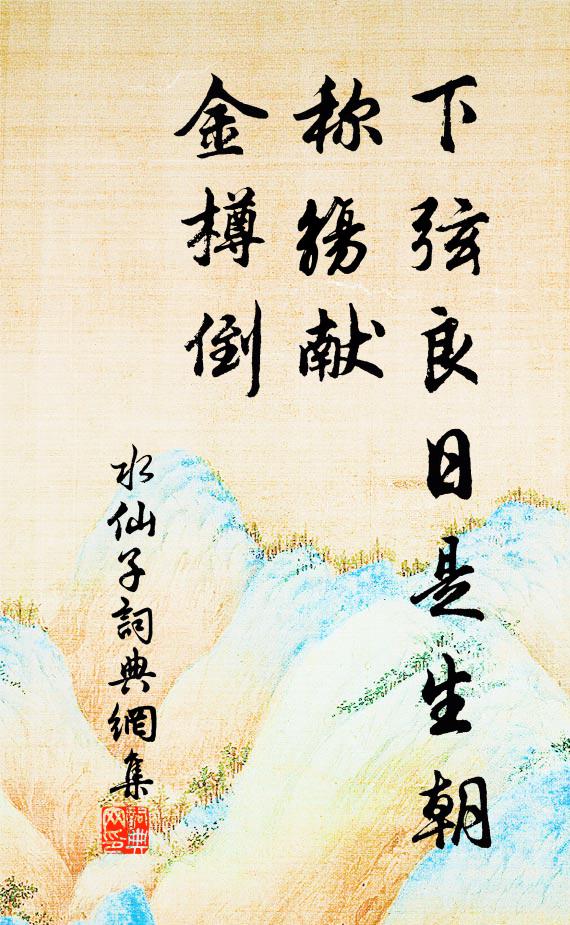 下弦良日是生朝
称觞献
金樽倒
水仙子詞典網集
詞典
网印